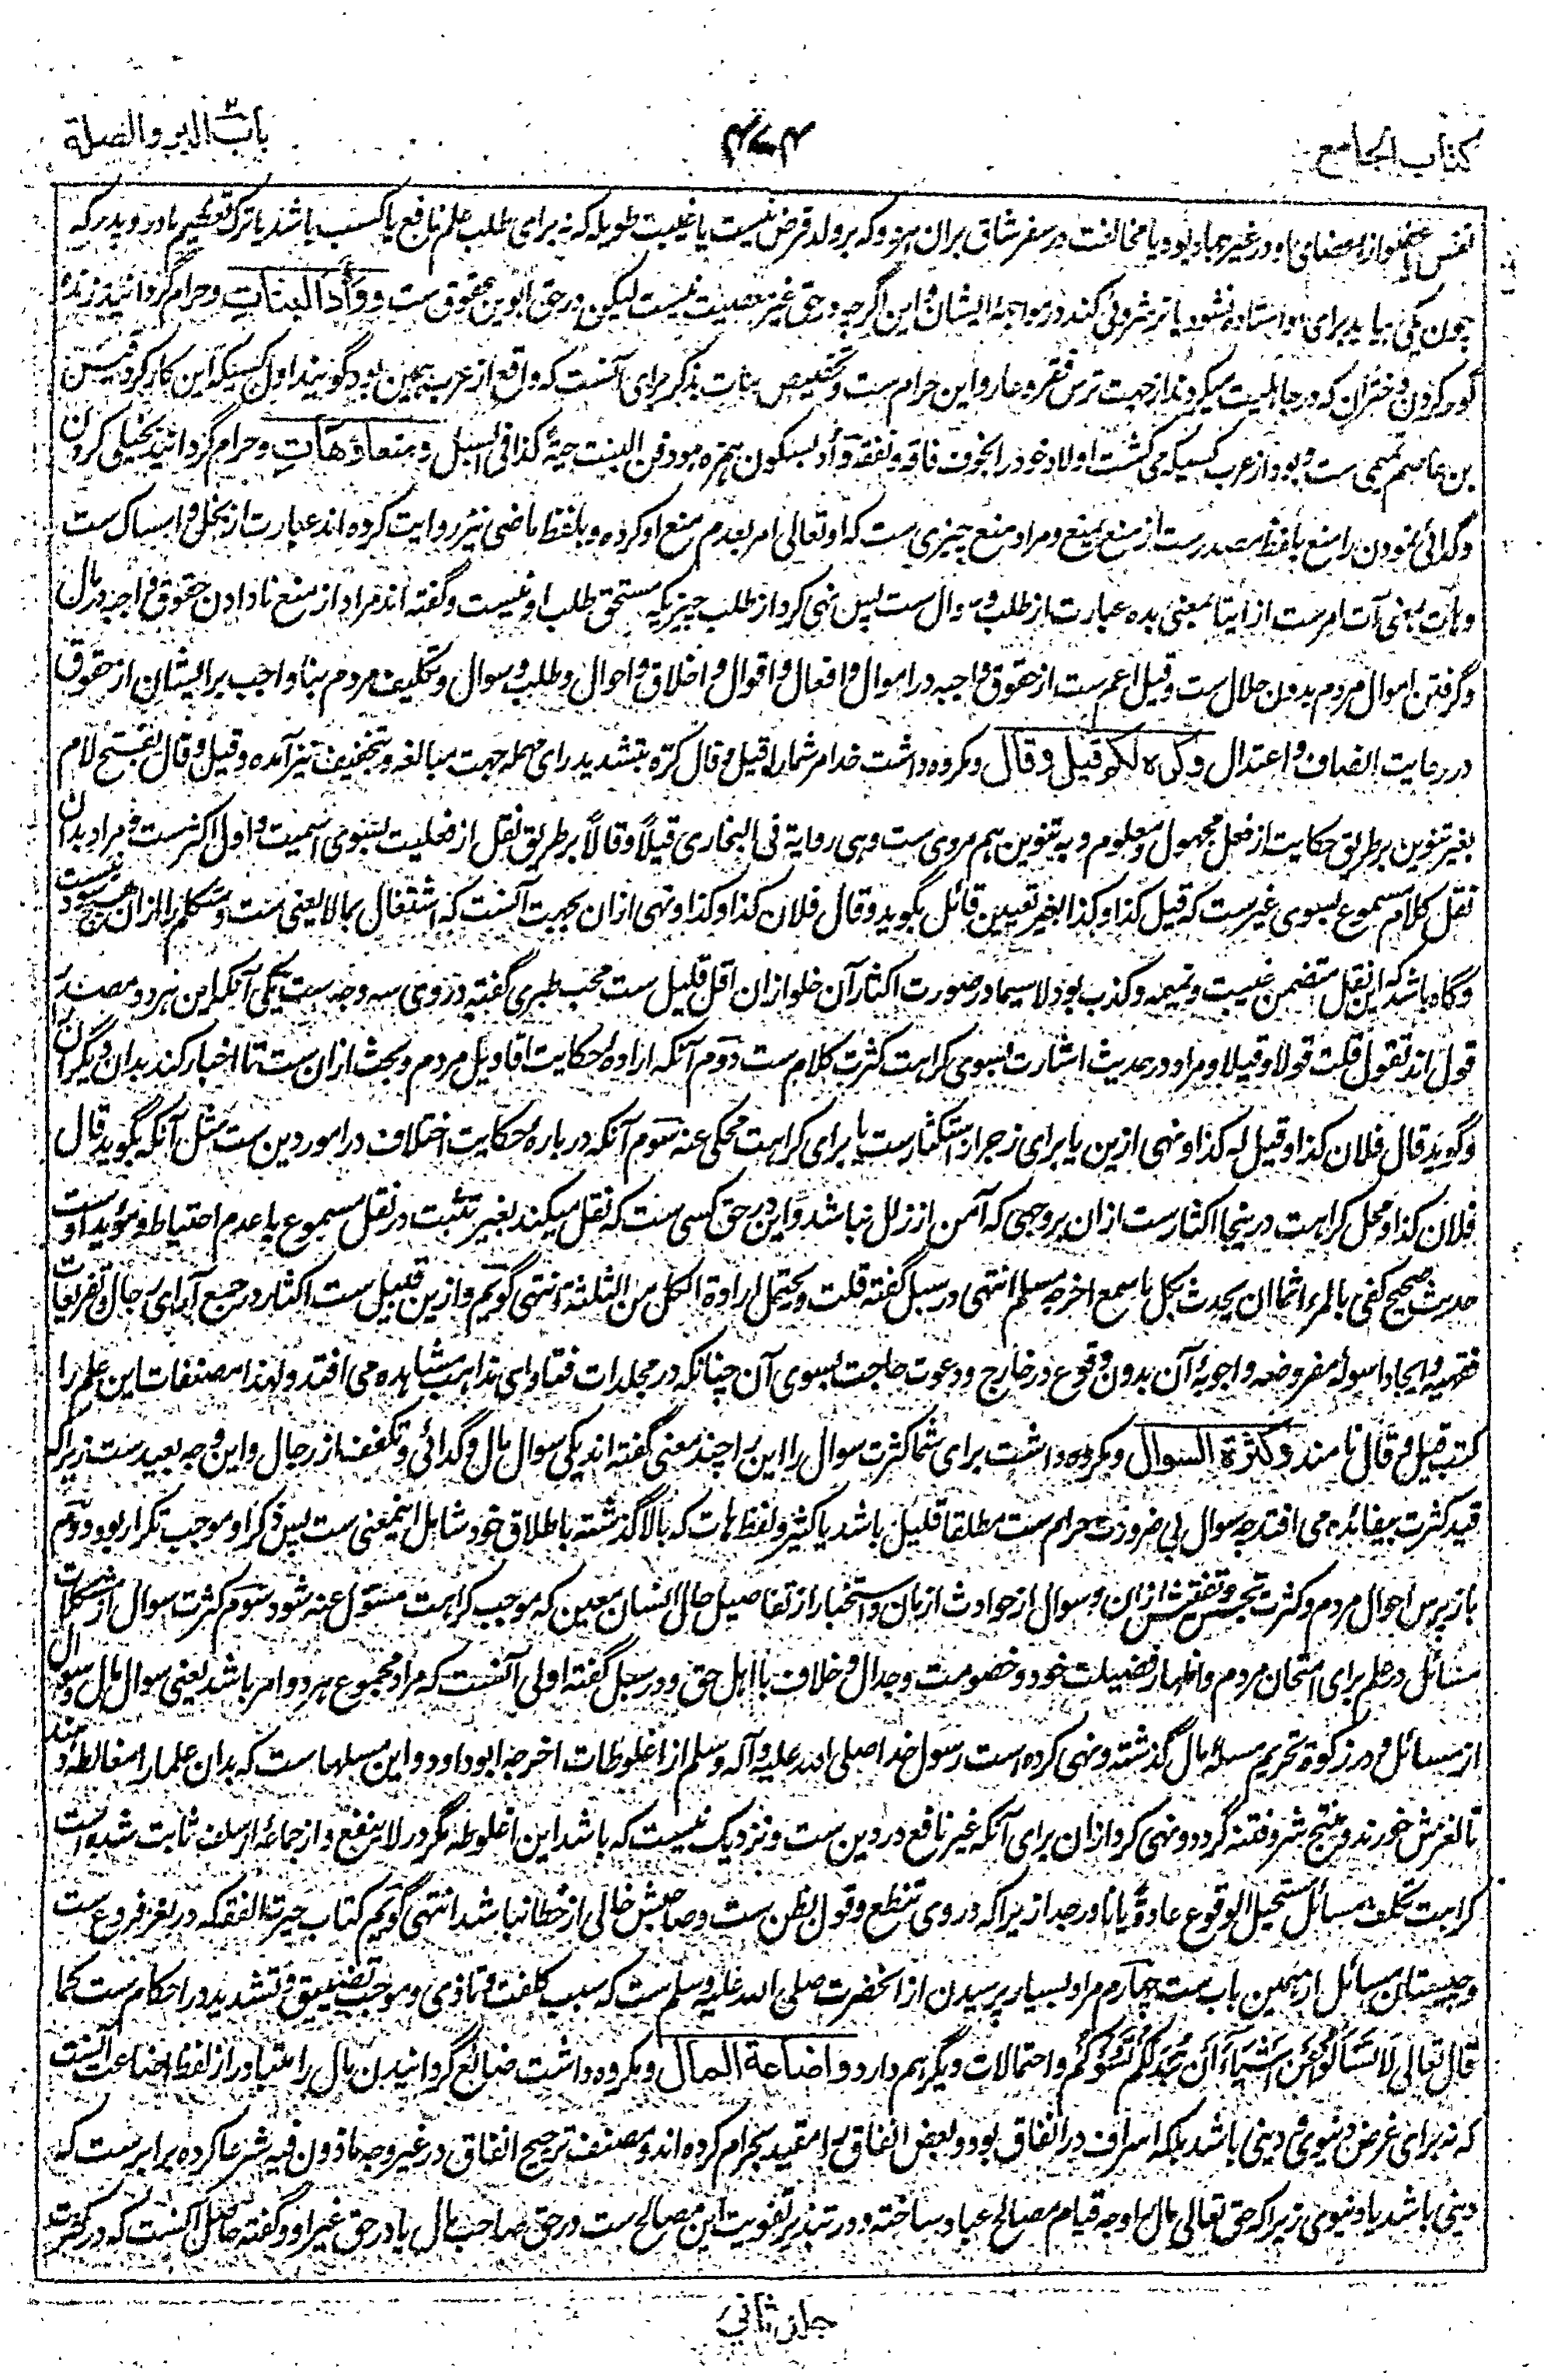 کتاب الجامع
۴۷۴
باب البر والصلة
نفس یا عضو از اعضای او در غیر جهاد بود یا مخالفت در سفر شاق بران هر دو که بر ولد فرض نیست یا غیبت طویله که نه برای طلب علم نافع یا کسب باشد یا ترک تعظیم مادر و پدر که
چون یکی بیاید برای او استاده نشود یا ترشروئی کند در مواجهۀ ایشان و این اگرچه در حق غیر معصیت نیست لیکن در حق ابوین عقوق ست ووأد البنات و حرام گردانید زنده
گور کردن دختران که در جاهلیت میکردند از جهت ترس فقر و عار و این حرام ست و تخصیص بنات بذکر برای آنست که واقع از عرب همین بود گویند اول کسیکه این کار کرد قیس
بن عاصم تمیمی ست و بود از عرب کسیکه می کشت اولاد خود را بخوف فاقه و نفقه وأد بسکون همزه هو دفن البنت حیة کذا فی السبل ومنعا وهات و حرام گردانید بخیلی کردن
و گدائی نمودن را منع بلفظ مصدرست از منع یمنع و مراد منع چیزی ست که او تعالی امر بعدم منع او کرده و بلفظ ماضی نیز روایت کرده اند عبارت از بخل و امساک ست
و هات بمعنی آت امرست از ایتا بمعنی بده عبارت از طلب و سوال ست پس نهی کرد از طلب چیزیکه مستحق طلب او نیست و گفته اند مراد از منع نادادن حقوق واجبه در مال
و گرفتن اموال مردم بدون حلال ست و قیل اعم ست از حقوق واجبه در اموال و افعال و اقوال و اخلاق و احوال و طلب و سوال و تکلیف مردم بناواجب بر ایشان از حقوق
در رعایت انصاف و اعتدال وکره لکم قیل وقال و مکروه داشت خدا مر شما را قیل و قال کره بتشدید رای مهمله جهت مبالغه و بتخفیف نیز آمده و قیل و قال بفتح لام
بغیر تنوین بر طریق حکایت از فعل مجهول و معلوم و به تنوین هم مروی ست وهی روایة فی البخاری قیلاً وقالاً بر طریق نقل از فعلیت بسوی اسمیت و اول اکثرست و مراد بدان
نقل کلام مسموع بسوی غیرست که قیل کذا وکذا بغیر تعیین قائل بگوید و قال فلان کذا وکذا و نهی ازان بجهت آنست که اشتغال بما لا یعنی ست و متکلم را ازان هیچ سود نیست
و گاه باشد که این نقل متضمن غیبت و نمیمه و کذب بود لا سیما در صورت اکثار آن خلو ازان اقل قلیل ست محب طبری گفته در وی سه وجه ست یکی آنکه این هر دو مصدر
قول اند تقول قلت قولا وقیلا و مراد در حدیث اشارت بسوی کراهت کثرت کلام ست دوم آنکه اراده حکایت اقاویل مردم و بحث ازان ست تا اخبار کند بدان دیگران را
و گوید قال فلان کذا وقیل له کذا و نهی ازین یا برای زجر از استکثارست یا برای کراهت محکی عنه سوم آنکه در بارۀ حکایت اختلاف در امور دین ست مثل آنکه بگوید قال
فلان کذا و محل کراهت درینجا اکثارست ازان بر وجهی که آمن از زلل نباشد و این در حق کسی ست که نقل میکند بغیر تثبت در نقل مسموع یا عدم احتیاط و مؤید اوست
حدیث صحیح کفی بالمرء اثما ان یحدث بکل ما سمع اخرجه مسلم انتهی در سبل گفته قلت ویحتمل ارادة الکل من الثلثة انتهی گویم و ازین قبیل ست اکثار در جمع آرای رجال و تفریعات
فقهیه و ایجاد اسولۀ مفروضه و اجوبۀ آن بدون وقوع در خارج و دعوت حاجت بسوی آن چنانکه در مجلدات فتاوای مذاهب مشاهده می افتد و لهذا مصنفات این علم را
کتب قیل و قال نامند وکثرة السوال و مکروه داشت برای شما کثرت سوال را این را چند معنی گفته اند یکی سوال مال و گدائی و تکفف از رجال و این وجه بعیدست زیراکه
قید کثرت بیفائده می افتد چه سوال بی ضرورت حرام ست مطلقا قلیل باشد یا کثیر و لفظ هات که بالا گذشته باطلاق خود شامل اینمعنی ست پس ذکر او موجب تکرار بود دوم
بازپرس احوال مردم و کثرت تجسس و تفتیش ازان و سوال از حوادث ازمان و استخبار از تفاصیل حال انسان معین که موجب کراهت مسئول عنه شود سوم کثرت سوال از مشکلات
مسائل در علم برای امتحان مردم و اظهار فضیلت خود و خصومت و جدال و خلاف با اهل حق و در سبل گفته اولی آنست که مراد مجموع هر دو امر باشد یعنی سوال مال و سوال
از مسائل و در زکوة تحریم مسئلۀ مال گذشته و نهی کرده است رسول خدا صلی الله علیه وآله وسلم از اغلوطات اخرجه ابو داود و این مسئلهاست که بدان علما را مغالطه دهند
تا لغزش خورند و منتج شر و فتنه گردد و نهی کرد ازان برای آنکه غیر نافع در دین ست و نزدیک نیست که باشد این اغلوطه مگر در لا ینفع و از جماعۀ از سلف ثابت شده است
کراهت تکلف مسائل مستحیل الوقوع عادة یا نادر جدا زیراکه در وی تنطع و قول بظن ست و صاحبش خالی از خطا نباشد انتهی گویم کتاب حیرة الفقه که در لغز فروع ست
و چیستان مسائل از همین باب ست چهارم مراد بسیار پرسیدن از آنحضرت صلی الله علیه وسلم ست که سبب کلفت و تاذی و موجب تضییق و تشدید در احکام ست کما
قال تعالی لَا تَسْأَلُوا عَنْ أَشْیَاءَ إِنْ تُبْدَ لَکُمْ تَسُؤْکُمْ و احتمالات دیگر هم دارد واضاعة المال و مکروه داشت ضائع گردانیدن مال را متبادر از لفظ اضاعت آنست
که نه برای غرض دنیوی دینی باشد بلکه اسراف در انفاق بود و بعض انفاق را مقید بحرام کرده اند و مصنف ترجیح انفاق در غیر وجه ماذون فیه شرعا کرده برابرست که
دینی باشد یا دنیوی زیراکه حق تعالی مال را وجه قیام مصالح عباد ساخته و در تبذیر تفویت این مصالح ست در حق صاحب مال یا در حق غیر او و گفته حاصل آنست که در کثرت
جلد ثانی